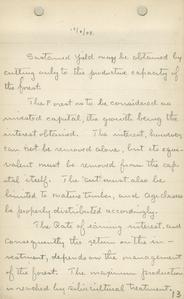 Sustained yield may be obtained by
cutting only to the productive capacity of
the forest.
The Forest is to be considered as
invested capital, its growth being the
interest obtained. The interest, however,
can not be removed alone, but its equi-
valent must be removed from the cap-
ital itself. The cut must also be
limited to mature timber, and age classes
be properly distributed accordingly.
The Rate of earning interest, and
consequently the return on the in-
vestment, depends on the management
of the forest. The maximum production
is reached by silvicultural treatment,
13